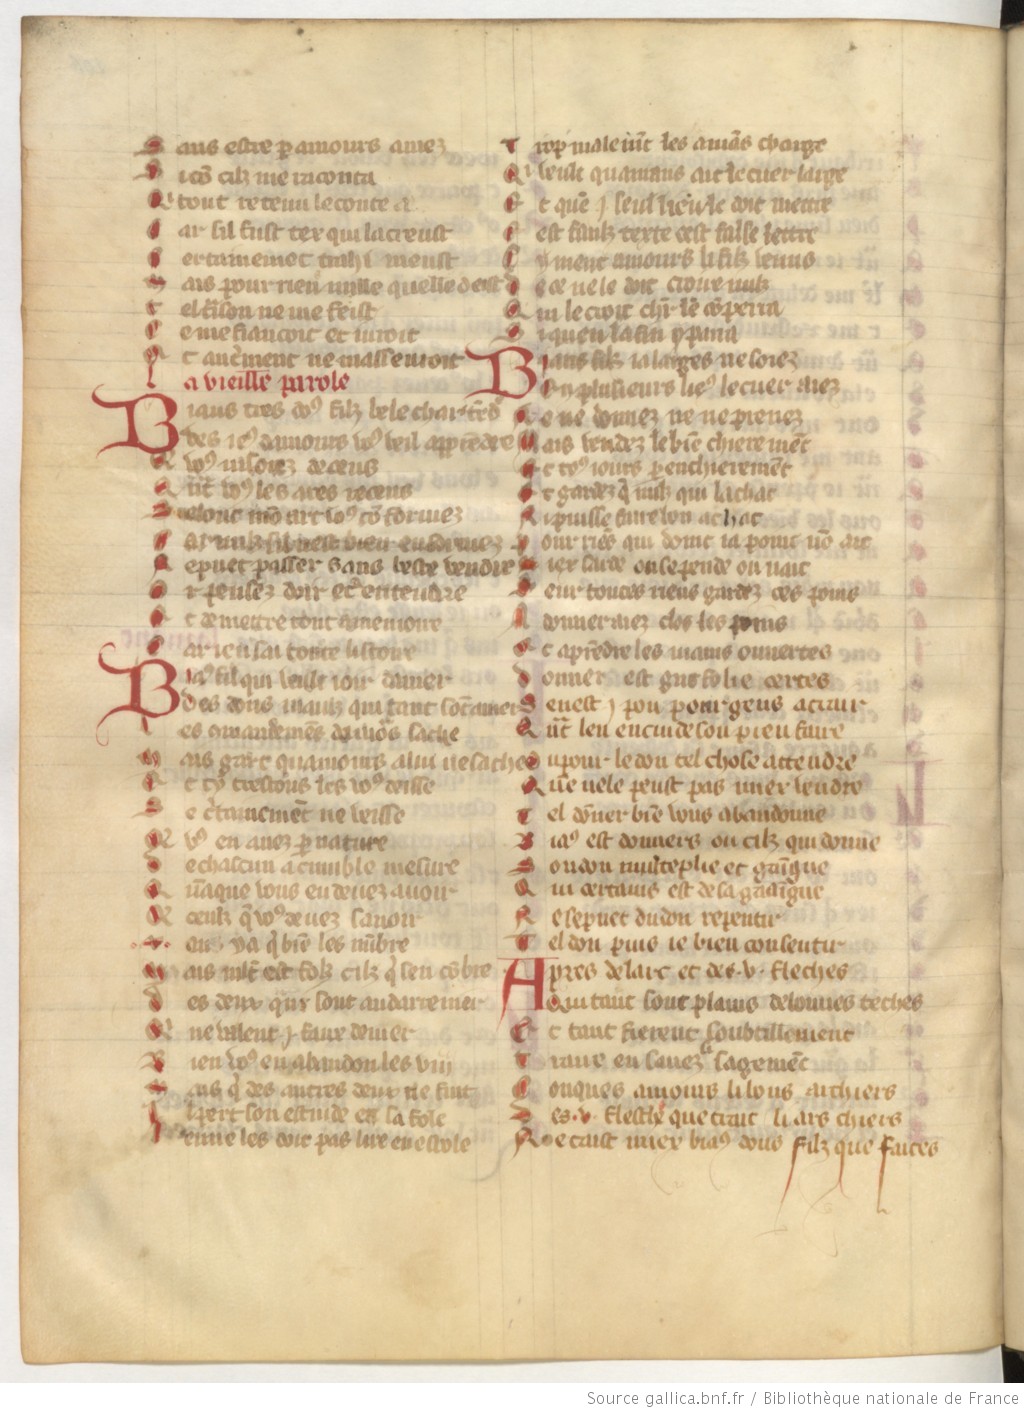 S ans estre p amours amez
D icō cilz me raconta
R etout retenu le conte a
C ar sil fust tex qui la creust
C ertainemēt trahi meust
M ais pour rien nulle quelle deist
T el traïson ne me feist
C e me fiancoit et iuroit
E t autmēt ne massenuroit
La vieille parole
B iaus tres doꝰ filz bele char tēdre
Des ieꝰ damours voꝰ veil apprēdre
Q voꝰ nisoiez deceus
Q ūt voꝰ les ares receus
S elonc mō art voꝰ cōformez
C ar nulz sil nest bien enformez
N e puet passer sans beste vendre
O r pensez doir et dentendre
E t de mettre tout a memoire
C ar ien sai toute listoire
B iaꝰ fil qui veult ioir damer
Des dous maulz qui tant sōt amer
L es cōmandemēs damōs sache
M ais gart quamours a lui ne sache
E t cy trestous les voꝰ deisse
S e certainemēt ne veisse
Q voꝰ en auez p nature
D e chascun a cumble mesure
Q uāque vous en deuez auoir
D e ceulz q̄ voꝰ deuez sauoir
x en ya q̄ biē les nūbre
M ais mlt est folz cilz q̄ sencōbre
D es deux qui sont au darrenier
Q ne valent j faux denier
B ien voꝰ en abandon les viij
M ais q̄ des autres deux ne suit
Il pert son estuide et sa fole
L en ne les doit pas lire en escole
T rop malemēt les amās charge
Q ueult quamans ait le cuer large
E t que j seul lieu le doit mettre
C est faulx texte cest false lettre
C y ment amours li filz venus
D e ce ne le doit croire nulz
Q ui le croit chr̄ le cōperra
S i que en la fin y parra
B iaus filz ia larges ne soiez
En plusieurs lieꝰ le cuer aiez
Ne ne donnez ne ne prenez
M ais vendez le biē chierement
E t toꝰ iours p enchierement
E t gardez q̄ nulz qui lachat
N i puisse faire bon achat
P our riēs qui doint ia point nō ait
M iex sarde ou se pende ou nait
S eur toutes riens gardez ces poins
A donner aiez clos les poins
E t a prēdre les mains ouuertes
D onner est grāt folie certes
S e nest j pou pour gens attrair
Q ūt len en cuide son preu faire
O u pour le don tel chose attendre
Q ue ne le peust pas miex vendre
T el dōner biē vous abandonne
B iaꝰ est donners ou cilz qui donne
S on don multeplie et gaaingne
Q ui certains est de sa gaaingne
N e se puet du don repentir
T el don puis ie bien consentir
A pres de larc et des .v. fleches
Qui tant sont plains de bonnes teches
E t tant fierent soubtillement
T raire en sauez sagement
C onques amours li bons archiers
D es .v. flesches que trait li ars chiers
N e traist miex biaꝰ dous filz que faites
Source gallica.bnf.fr / Bibliothèque nationale de France